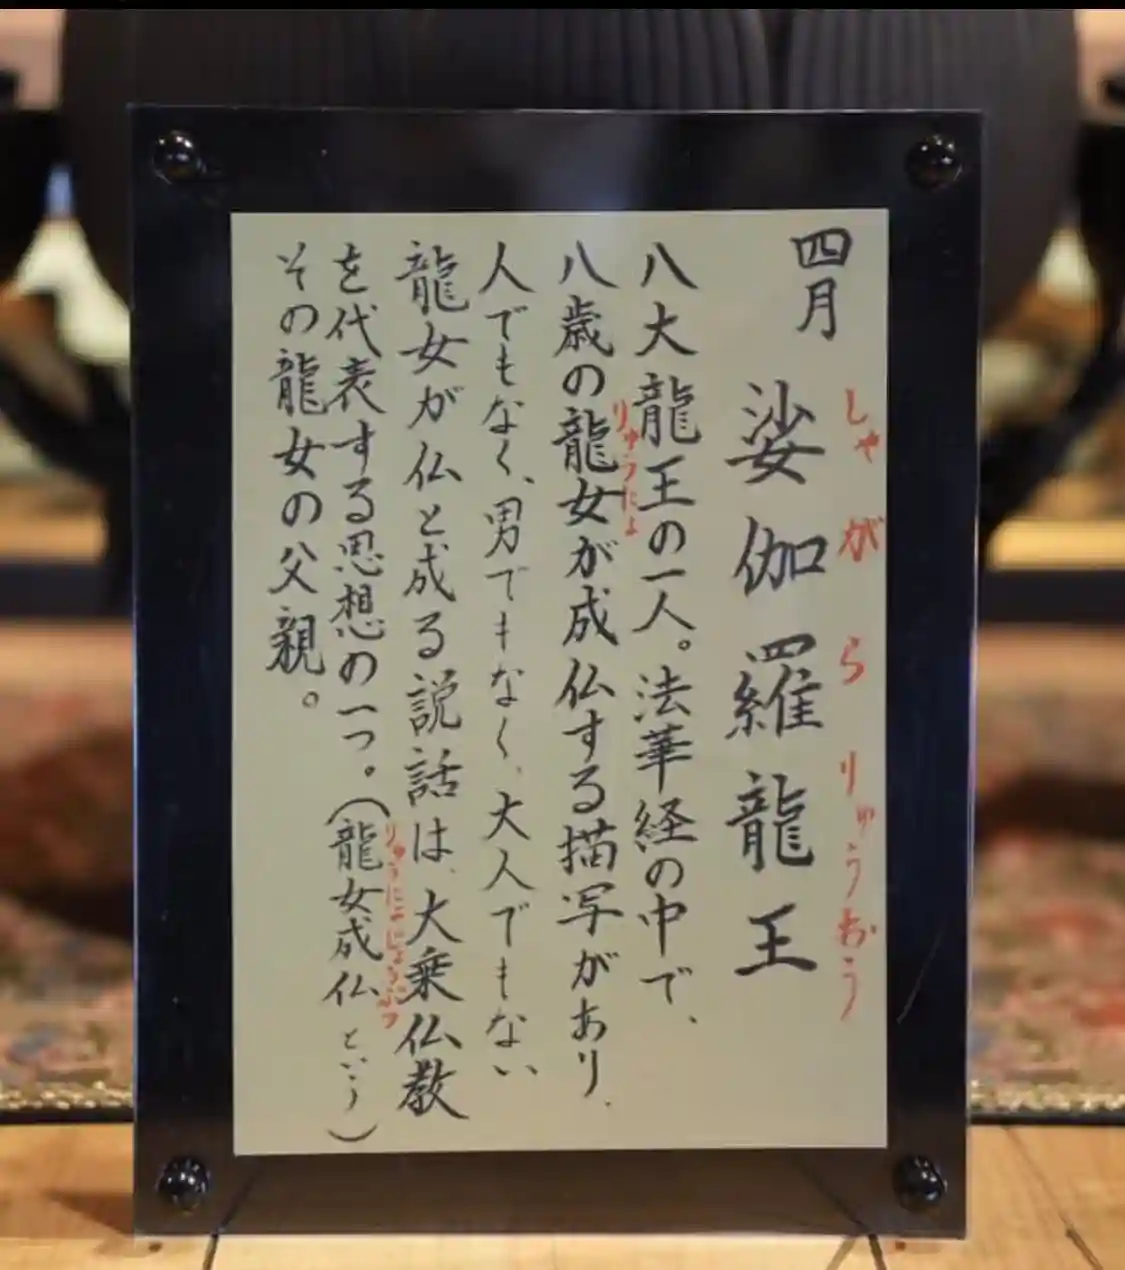 四月 娑伽羅龍王
しゃがらりゅうおう
八大龍王の一人。法華経の中で、
八歳の龍女が成仏する描写があり、
りゅうにょ
人でもなく、男でもなく、大人でもない
龍女が仏と成る説話は、大乗仏教
を代表する思想の一つ。(龍女成仏という)
りゅうにょじょうぶつ
その龍女の父親。